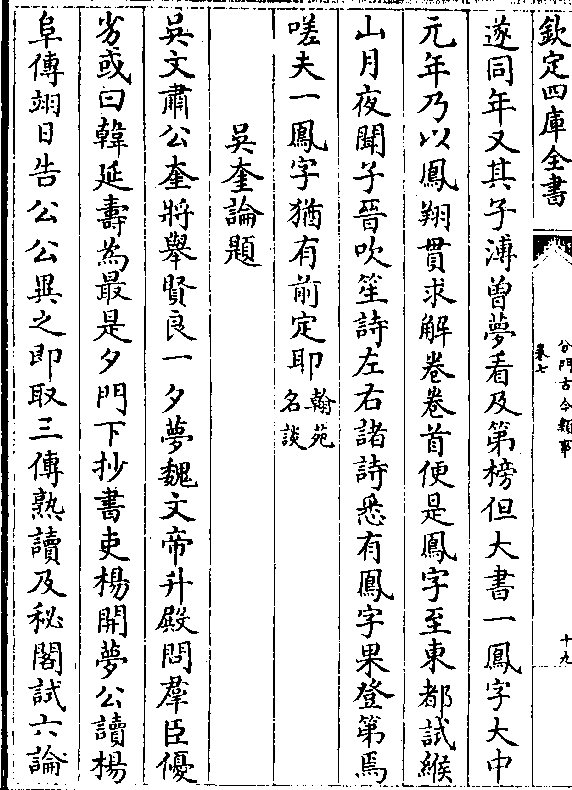 欽定四庫全書
分門古今類事
卷七
十九
遂同年又其子溥曽夢看及第榜但大書一鳳字大中
元年乃以鳳翔貫求解卷卷首便是鳳字至東都試緱
山月夜聞子晉吹笙詩左右諸詩悉有鳳字果登第焉
嗟夫一鳳字猶有前定耶翰苑名談
吳奎論題
吳文肅公奎將舉賢良一夕夢魏文帝升殿問羣臣優
劣或曰韓延壽為最是夕門下抄書吏楊開夢公讀楊
阜傳翊日告公公異之即取三傳熟讀及秘閣試六論